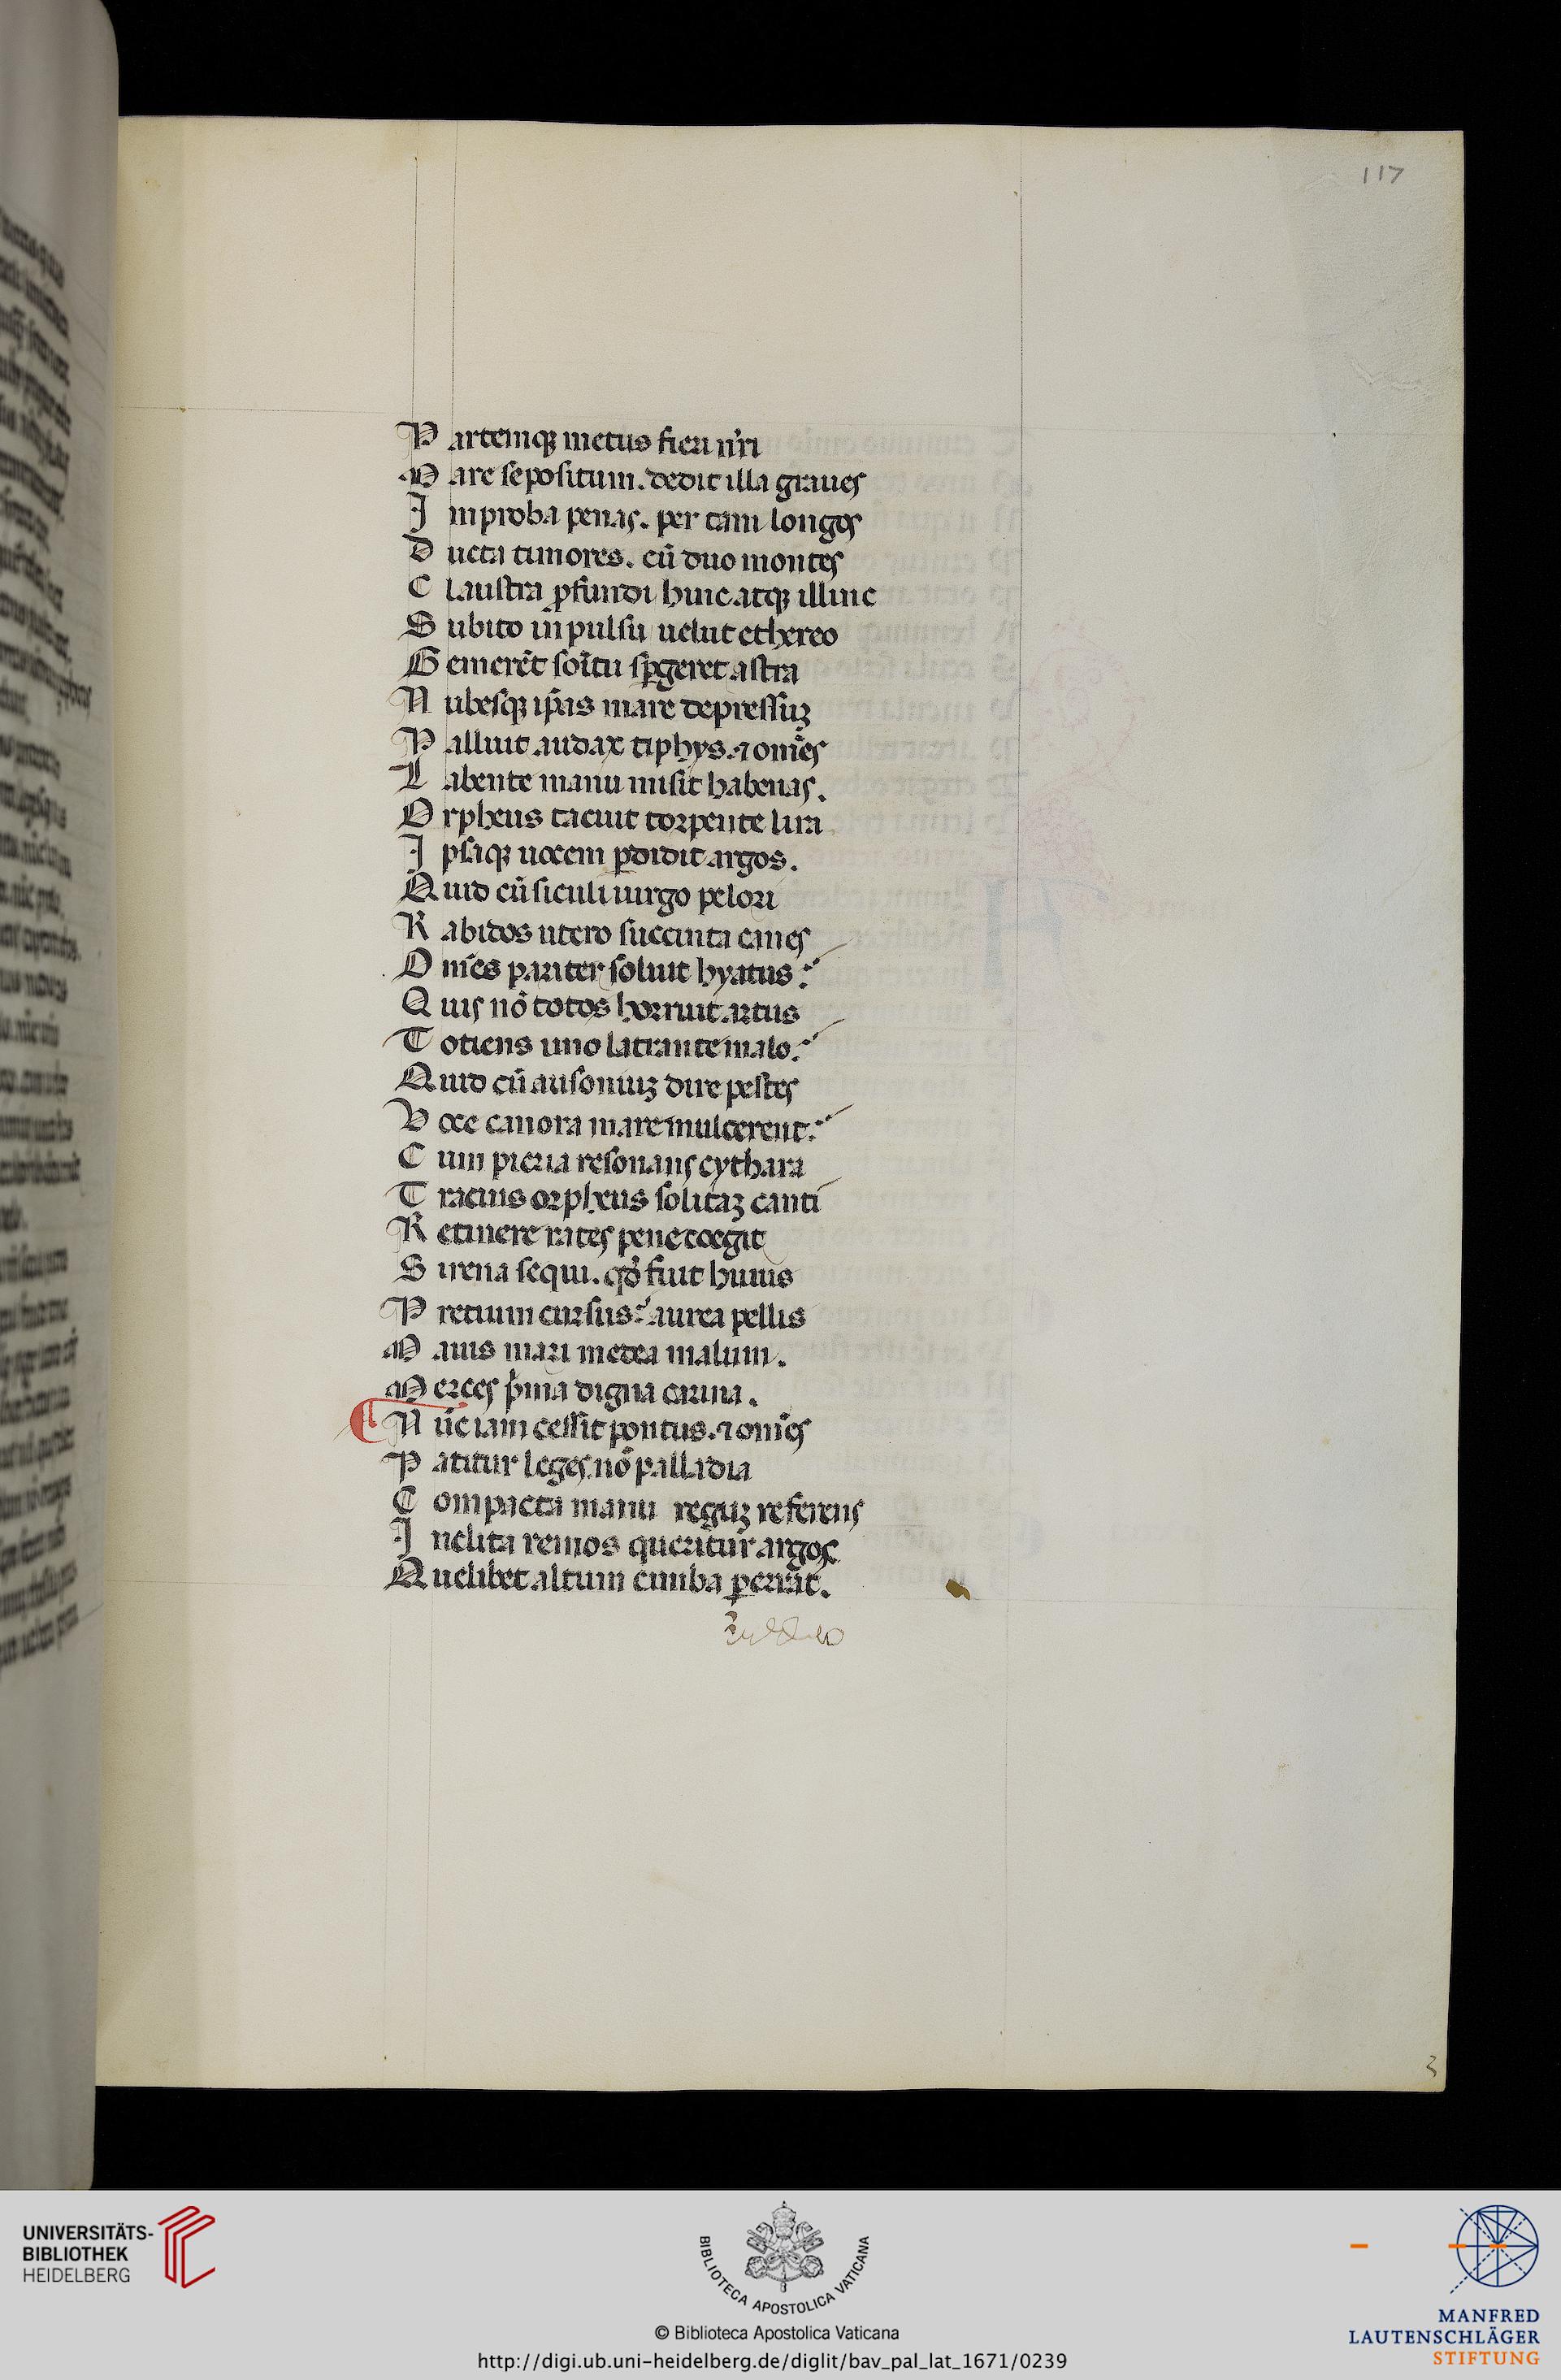 117
Partemq; metus fieri nr̄i
Mare sepositum. dedit illa graues
Improba penas. per tam longos
Ducta timores. cū duo montes
Claustra ꝓfundi hinc atq; illinc
Subito īpulsu uelut ethereo
Gemerēt sonitu sꝑgeret astra
Nubesq; ip̄as mare depressuꝫ
Palluit audax tiphys. ⁊ om̄es
Labente manu misit habenas.
Orpheus tacuit torpente lira
Ipsaq; uocem ꝑdidit argos.
Quid cū siculi uirgo pelori
Rabidos utero succincta canes
Om̄es pariter soluit hyatus?
Quis nō totos horruit artus
Totiens uno latrante malo?
Quid cū ausoniuꝫ dire pestes
Voce canora mare mulcerent?
Cum pieria resonans cythara
Tracius orpheus solitaꝫ cantū
Retinere rates pene coegit
Sirena sequi. qd̄ fuit huius
Pretium cursus? aurea pellis
Maius mari medea malum.
Merces p̄ma digna carina.
Nūc iam cessit pontus. ⁊ om̄es
Patitur leges. nō palladia
Compacta manu reguꝫ referens
Inclita remos queritur argos
Quelibet altum cimba ꝑerrat.
3
UNIVERSITÄTS-
BIBLIOTHEK
HEIDELBERG
BIBLIOTECA APOSTOLICA VATICANA
© Biblioteca Apostolica Vaticana
http://digi.ub.uni-heidelberg.de/diglit/bav_pal_lat_1671/0239
MANFRED
LAUTENSCHLÄGER
STIFTUNG